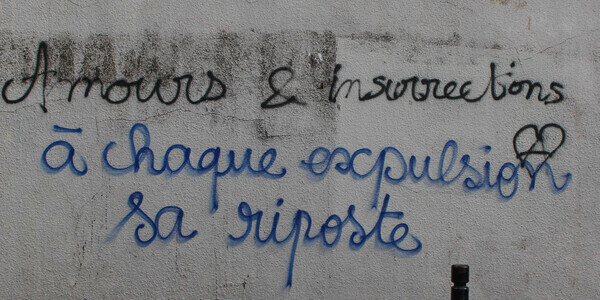 Amours & insurrections
à chaque expulsion
sa riposte